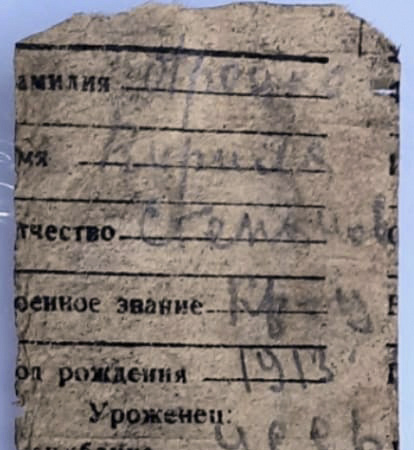 амилия
мя Кирилл
тчество Степанов
оенное звание Кр-ц
од рождения 1913
Уроженец: